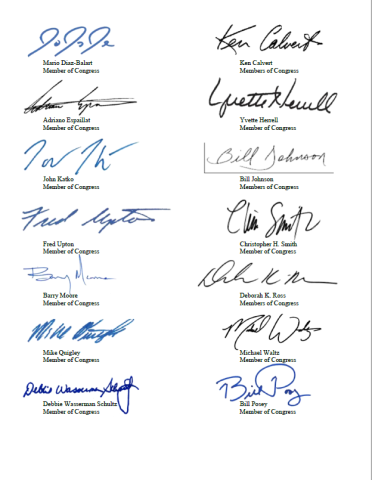 Ken Calvert
Mario Diaz-Balart
Member of Congress
Ken Calvert
Members of Congress
Yvette Herrell
Adriano Espaillat
Member of Congress
Yvette Herrell
Member of Congress
Bill Johnson
John Katko
Member of Congress
Bill Johnson
Members of Congress
Fred Upton
Chris Smith
Fred Upton
Member of Congress
Christopher H. Smith
Member of Congress
Barry Moore
Barry Moore
Member of Congress
Deborah K. Ross
Members of Congress
Mike Quigley
Michael Waltz
Mike Quigley
Member of Congress
Michael Waltz
Member of Congress
Debbie Wasserman Schultz
Bill Posey
Debbie Wasserman Schultz
Member of Congress
Bill Posey
Member of Congress